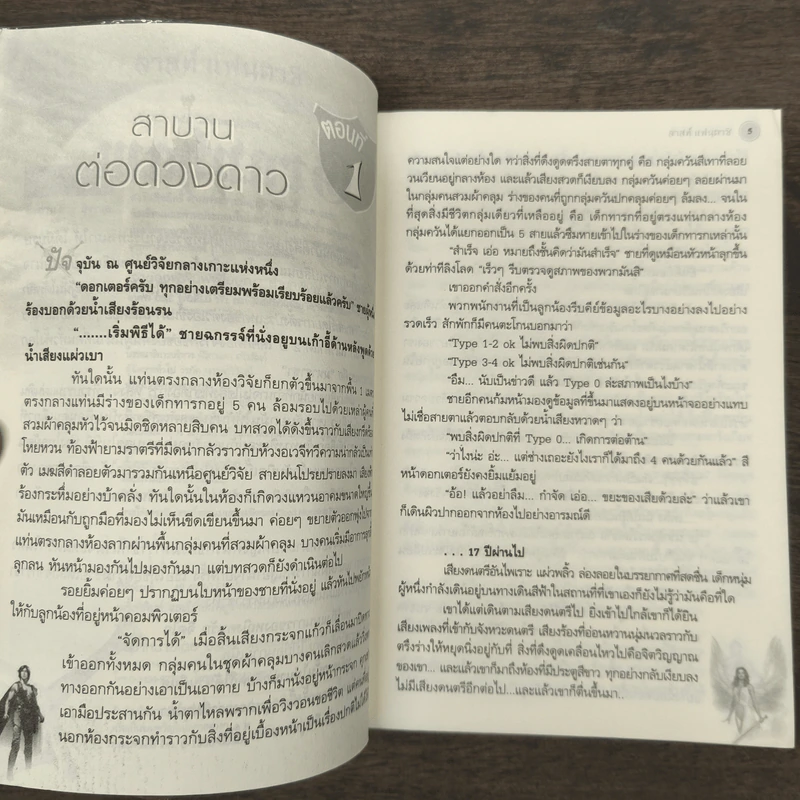 ตอนที่
1
สาบาน
ต่อดวงดาว
ปัจจุบัน ณ ศูนย์วิจัยกลางเกาะแห่งหนึ่ง
"ดอกเตอร์ครับ ทุกอย่างเตรียมพร้อมเรียบร้อยแล้วครับ"
ร้องบอกด้วยน้ำเสียงร้อนรน
".......เริ่มพิธีได้" ชายฉกรรจ์ที่นั่งอยู่บนเก้าอี้ด้านหลังพูดด้วย
น้ำเสียงแผ่วเบา
ทันใดนั้น แท่นตรงกลางห้องวิจัยก็ยกตัวขึ้นมาจากพื้น 1 เมตร
ตรงกลางแท่นมีร่างของเด็กทารกอยู่ 5 คน ล้อมรอบไปด้วยเหล่าผู้คนที่
สวมผ้าคลุมหัวไว้จนมิดชิดหลายสิบคน บทสวดได้ดังขึ้นราวกับเสียงกรีดร้อง
โหยหวน ท้องฟ้ายามราตรีที่มืดน่ากลัวราวกับห้วงอเวจีทวีความน่ากลัวไปในทุก
ตัว เมฆสีดำลอยตัวมารวมกันเหนือศูนย์วิจัย สายฝนโปรยปรายลงมา เสียง
ร้องกระหึ่มอย่างบ้าคลั่ง ทันใดนั้นในห้องก็เกิดวงแหวนอาคมขนาดใหญ่ขึ้น
มันเหมือนกับถูกมือที่มองไม่เห็นขีดเขียนขึ้นมา ค่อยๆ ขยายตัวออกพุ่งไป
แท่นตรงกลางห้องลากผ่านพื้นกลุ่มคนที่สวมผ้าคลุม บางคนเริ่มมีอาการลุกลี้
ลุกลน หันหน้ามองกันไปมองกันมา แต่บทสวดก็ยังดำเนินต่อไป
รอยยิ้มค่อยๆ ปรากฏบนใบหน้าของชายที่นั่งอยู่ แล้วหันไปพยักหน้า
ให้กับลูกน้องที่อยู่หน้าคอมพิวเตอร์
"จัดการได้" เมื่อสิ้นเสียงกระจกแก้วก็เลื่อนมาปิดทาง
เข้าออกทั้งหมด กลุ่มคนในชุดผ้าคลุมบางคนเลิกสวดแล้ววิ่ง
ทางออกกันอย่างเอาเป็นเอาตาย บ้างก็มานั่งอยู่หน้ากระจก
เอามือประสานกัน น้ำตาไหลพรากเพื่อวิงวอนขอชีวิต แต่คนที่อยู่
นอกห้องกระจกทำราวกับสิ่งที่อยู่เบื้องหน้าเป็นเรื่องปกติไม่ได้
5
ความสนใจแต่อย่างใด ทว่าสิ่งที่ดึงดูดตรึงสายตาทุกคู่ คือ กลุ่มควันสีเทาที่ลอย
วนเวียนอยู่กลางห้อง และแล้วเสียงสวดก็เงียบลง กลุ่มควันค่อยๆ ลอยผ่านมา
ในกลุ่มคนสวมผ้าคลุม ร่างของคนที่ถูกกลุ่มควันปกคลุมค่อยๆ ล้มลง... จนใน
ที่สุดสิ่งมีชีวิตกลุ่มเดียวที่เหลืออยู่ คือ เด็กทารกที่อยู่ตรงแท่นกลางห้อง
กลุ่มควันได้แยกออกเป็น 5 สายแล้วซึมหายเข้าไปในร่างของเด็กทารกเหล่านั้น
"สำเร็จ เอ่อ หมายถึงชั้นคิดว่ามันสำเร็จ" ชายที่ดูเหมือนหัวหน้าลุกขึ้น
ด้วยท่าทีลิงโลด "เร็วๆ รีบตรวจดูสภาพของพวกมันสิ"
เขาออกคำสั่งอีกครั้ง
พวกพนักงานที่เป็นลูกน้องรีบคีย์ข้อมูลอะไรบางอย่างลงไปอย่าง
รวดเร็ว สักพักก็มีคนตะโกนบอกมาว่า
"Type 1-2 ok ไม่พบสิ่งผิดปกติ"
"Type 3-4 ok ไม่พบสิ่งผิดปกติเช่นกัน"
"อืม... นับเป็นข่าวดี แล้ว Type 0 ล่ะสภาพเป็นไงบ้าง"
ชายอีกคนก้มหน้ามองดูข้อมูลที่ขึ้นมาแสดงอยู่บนหน้าจออย่างแทบ
ไม่เชื่อสายตาแล้วตอบกลับด้วยน้ำเสียงหวาดๆ ว่า
"พบสิ่งผิดปกติที่ Type 0... เกิดการต่อต้าน"
"ว่าไงน่ะ อ่ะ... แต่ช่างเถอะยังไงเราก็ได้มาถึง 4 คนด้วยกันแล้ว" สี
หน้าดอกเตอร์ยังคงยิ้มแย้มอยู่
"อ้อ! แล้วอย่าลืม... กำจัด เอ่อ... ขยะของเสียด้วยล่ะ" ว่าแล้วเขา
ก็เดินผิวปากออกจากห้องไปอย่างอารมณ์ดี
... 17 ปีผ่านไป
เสียงดนตรีอันไพเราะ แผ่วพลิ้ว ล่องลอยในบรรยากาศที่สดชื่น เด็กหนุ่ม
ผู้หนึ่งกำลังเดินอยู่บนทางเดินสีฟ้าในสถานที่ที่เขาเองก็ยังไม่รู้ว่ามันคือที่ใด
เขาได้แต่เดินตามเสียงดนตรีไป ยิ่งเข้าไปใกล้เขาก็ได้ยิน
เสียงเพลงที่เข้ากับจังหวะดนตรี เสียงร้องที่อ่อนหวานนุ่มนวลราวกับ
ตรึงร่างให้หยุดนิ่งอยู่กับที่ สิ่งที่ดึงดูดเคลื่อนไหวไปคือจิตวิญญาณ
ของเขา... และแล้วเขาก็มาถึงห้องที่มีประตูสีขาว ทุกอย่างกลับเงียบลง
ไม่มีเสียงดนตรีอีกต่อไป...และแล้วเขาก็ตื่นขึ้นมา..